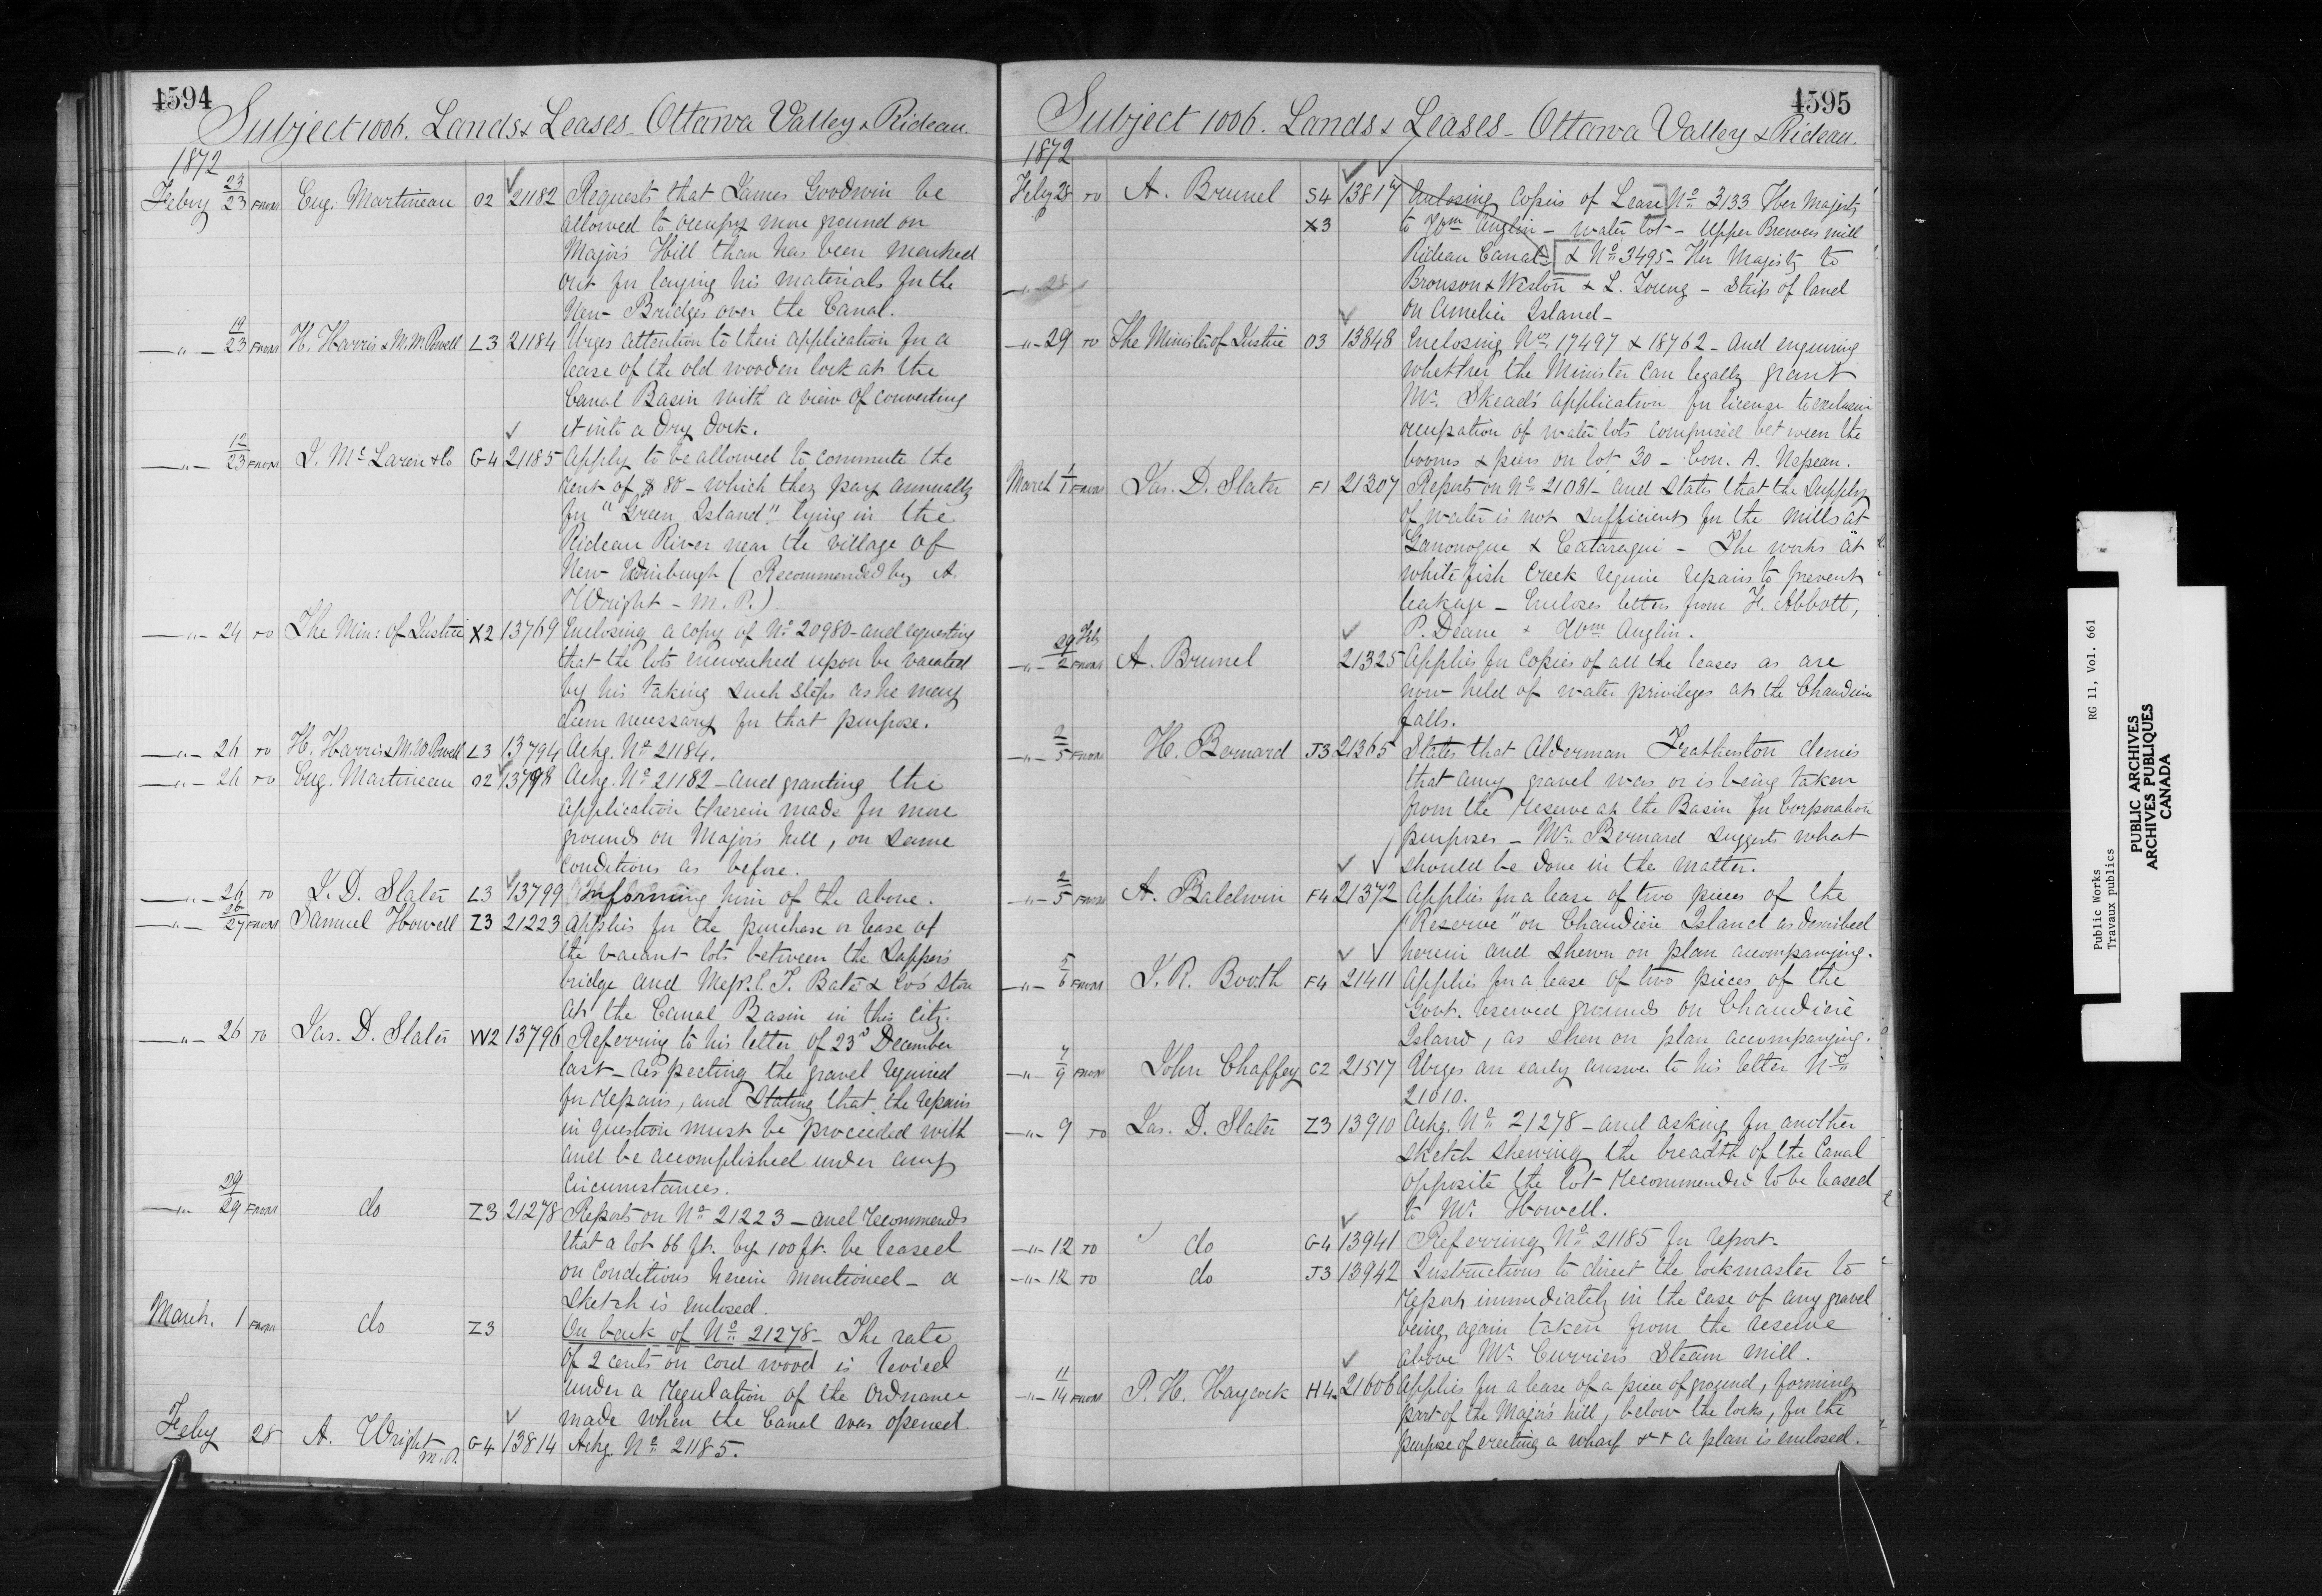 4594
Subject 1006. Lands & Leases - Ottawa Valley & Rideau.
1872
Feby 23/23 FROM Eug. Martineau O2 21182 Requests that James Goodwin be
allowed to occupy more ground on
Major's Hill than has been marked
out for laying his materials for the
New Bridges over the Canal.
—"— 19/23 FROM H. Harris & M. W. Powell L3 21184 Urges attention to their application for a
lease of the old wooden lock at the
Canal Basin with a view of converting
it into a Dry Dock.
—"— 12/23 FROM J. McLaren & Co G4 21185 Apply to be allowed to commute the
rent of $80 - which they pay annually
for "Green Island" lying in the
Rideau River near the village of
New Edinburgh (Recommended by A.
Wright - M.P.)
—"— 24 TO The Min: of Justice X2 13769 Enclosing a copy of No 20980 - and requesting
that the lots encroached upon be vacated
by his taking such steps as he may
deem necessary for that purpose.
—"— 26 TO H. Harris & M. W Powell L3 13794 Ackg. No 21184.
—"— 26 TO Eug. Martineau O2 13798 Ackg. No 21182 - and granting the
application therein made for more
grounds on Major's hill, on same
conditions as before.
—"— 26 TO J. D. Slater L3 13799 Informing him of the above.
—"— 26/27 FROM Samuel Howell Z3 21223 Applies for the purchase or lease of
the vacant lots between the Sappers
bridge and Messrs. C. T. Bate & Co's Store
at the Canal Basin in this city.
—"— 26 TO Jas. D. Slater W2 13796 Referring to his letter of 23d December
last - respecting the gravel required
for repairs, and stating that the repairs
in question must be proceeded with
and be accomplished under any
circumstances.
—"— 29/29 FROM do Z3 21278 Reports on No 21223 - and recommends
that a lot 66 ft. by 100 ft. be leased
on conditions herein mentioned - a
sketch is enclosed.
March. 1 FROM do Z3 On back of No 21278 - The rate
of 2 cents on cord wood is levied
under a regulation of the Ordnance
made when the Canal was opened.
Feby 28 A. Wright M.P. G4 13814 Ackg. No 21185.
4595
Subject 1006. Lands & Leases - Ottawa Valley & Rideau.
1872
Feby 28 TO A. Brunel S4 13817 Enclosing Copies of Lease No 3133 Her Majesty
X3 to Wm Anglin - water lot - Upper Brewers mill
Rideau Canal - & No 3495 - Her Majesty to
—"— 28 Bronson & Weston & L. Young - Strip of land
on Amelia Island -
—"— 29 TO The Minister of Justice O3 13848 Enclosing Nos 17497 & 18762 - and enquiring
whether the Minister can legally grant
Mr. Skead's application for license to exclusive
occupation of water lots comprised between the
booms & piers on lot 30 - Con. A. Nepean.
March 1/1 FROM Jas. D. Slater F1 21307 Reports on No 21081 - and states that the supply
of water is not sufficient for the mills at
Gananoque & Cataraqui - The works at
white fish Creek require repairs to prevent
leakage - Encloses letters from H. Abbott,
P. Deane & Wm Anglin.
—"— 29 Feb/2 FROM A. Brunel 21325 Applies for copies of all the leases as are
now held of water privileges at the Chaudiere
falls.
—"— 2/5 FROM H. Bernard J3 21365 States that Alderman Featherston denies
that any gravel was or is being taken
from the reserve at the Basin for Corporation
purposes - Mr. Bernard suggests what
should be done in the matter.
—"— 2/5 FROM A. Baldwin F4 21372 Applies for a lease of two pieces of the
"Reserve" on Chaudiere Island as described
herein and shewn on plan accompanying.
—"— 5/6 FROM J. R. Booth F4 21411 Applies for a lease of two pieces of the
Govt. reserved grounds on Chaudiere
Island, as shen on plan accompanying.
—"— 7/9 FROM John Chaffey C2 21517 Urges an early answer to his letter No
21010.
—"— 9 TO Jas. D. Slater Z3 13910 Ackg. No 21278 - and asking for another
sketch shewing the breadth of the Canal
opposite the lot recommended to be leased
to Mr. Howell.
—"— 12 TO do G4 13941 Referring No 21185 for report.
—"— 12 TO do J3 13942 Instructions to direct the lockmaster to
report immediately in the case of any gravel
being again taken from the reserve
above Mr. Curriers Steam mill.
—"— 11/14 FROM P. H. Haycock H4 21606 Applies for a lease of a piece of ground, forming
part of the Major's hill, below the locks, for the
purpose of erecting a wharf &c & a plan is enclosed.
Public Works RG 11, Vol. 661
Travaux publics
PUBLIC ARCHIVES
ARCHIVES PUBLIQUES
CANADA